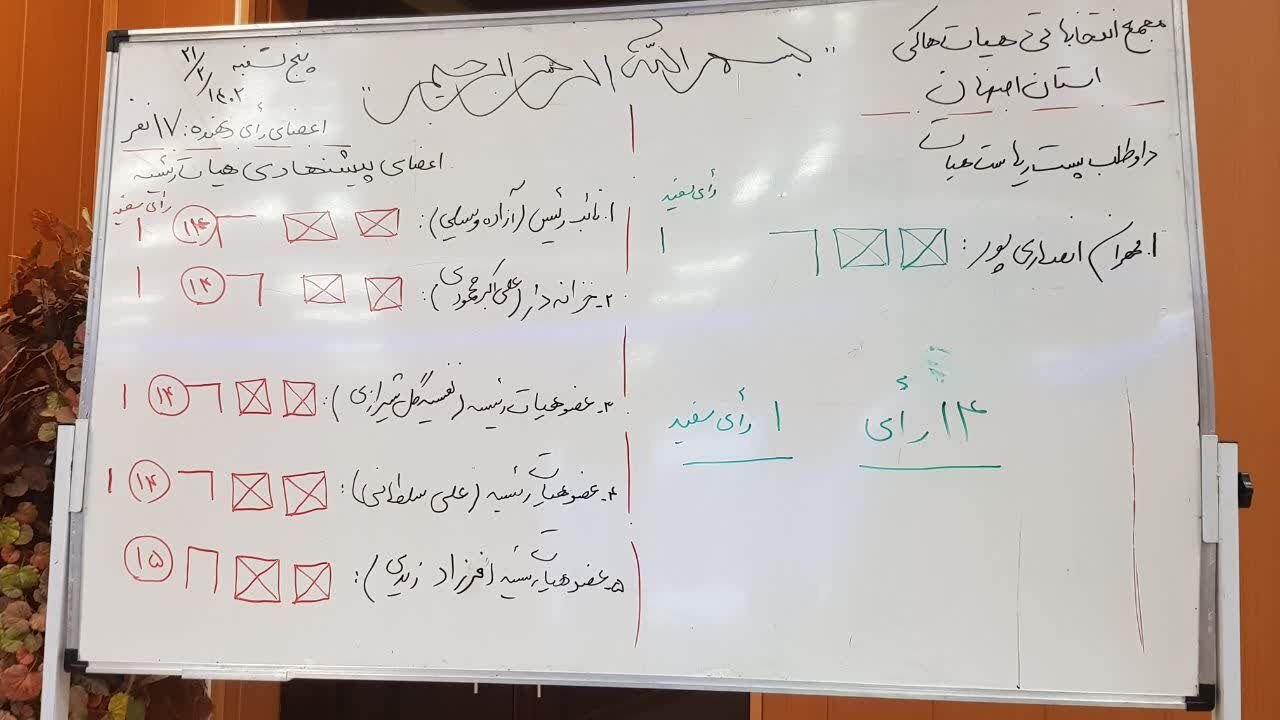 بسم الله الرحمن الرحیم
مجمع انتخاباتی هیات هاکی
استان اصفهان
داوطلب پست ریاست هیات
رأی سفید
۱. مهران انصاری پور: ۱
۱۴ رأی
۱ رأی سفید
پنج شنبه
۲۱/۲/۱۴۰۲
اعضای رأی دهنده: ۱۷ نفر
اعضای پیشنهادی هیات رئیسه
رأی سفید
۱. نائب رئیس (آزاده وسلی): ۱۴ ۱
۲- خزانه دار (علی اکبر محمودی): ۱۴ ۱
۳- عضو هیات رئیسه (نفیسه گل شیرازی): ۱۴ ۱
۴- عضو هیات رئیسه (علی سلطانی): ۱۴ ۱
۵- عضو هیات رئیسه (فرزاد زیدی): ۱۵